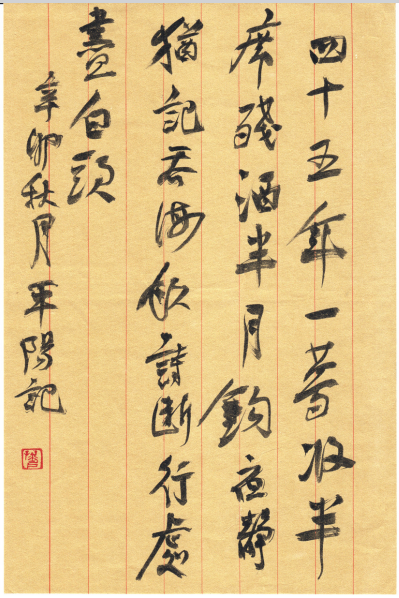 四十五年一夢收半
席殘酒半月鈎夜靜
猶記吞海飲詩斷行處
盡白頭
辛卯秋月平陽記